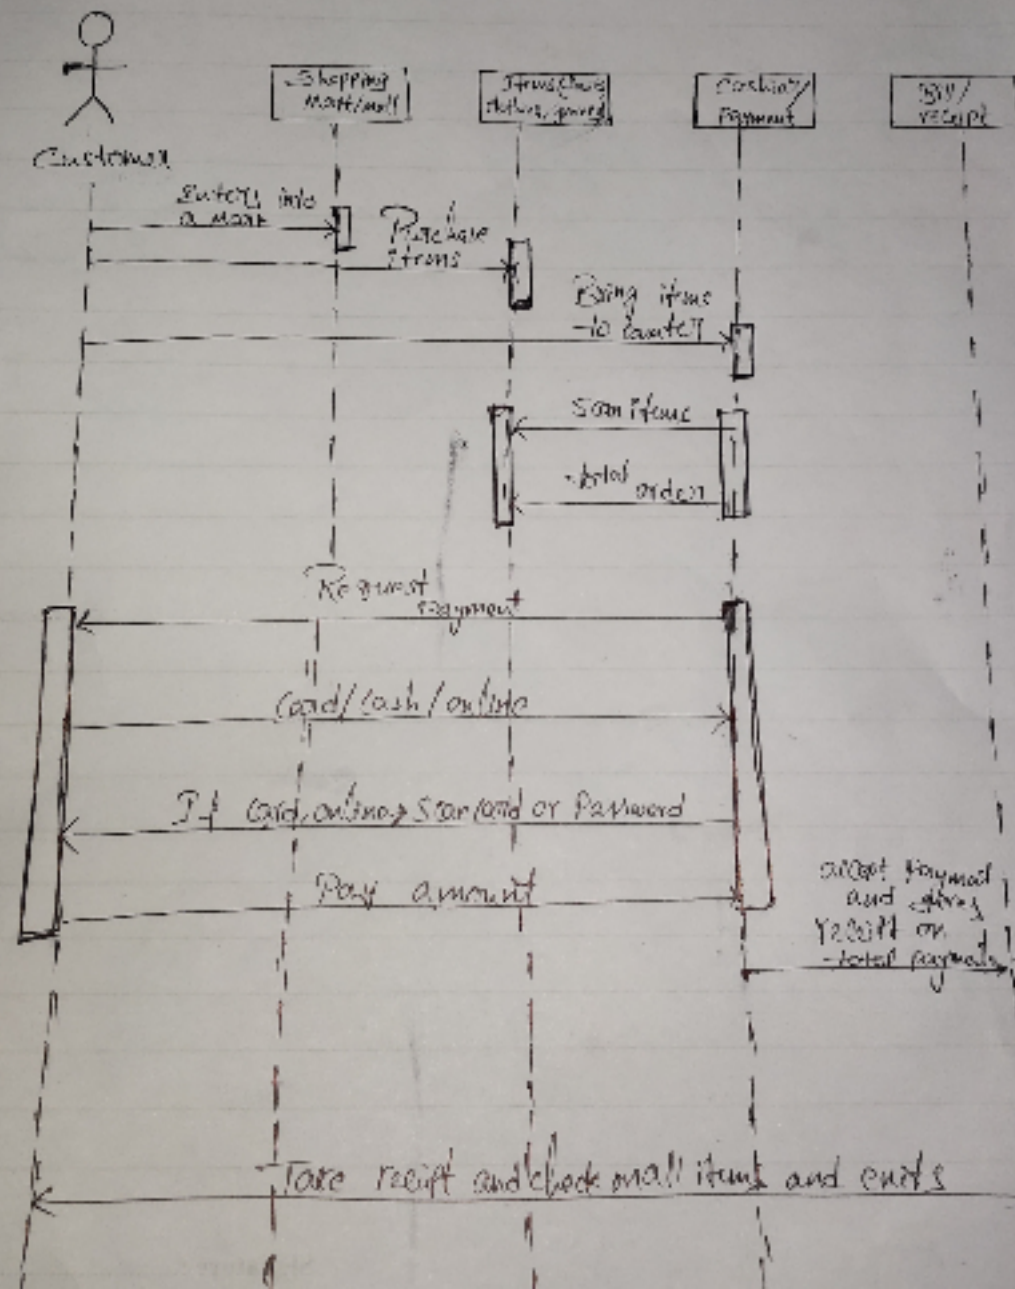 Shopping
Mart/mall
Cashier/
Payment
Bill/
receipt
Customer
Enters into
a Mart
Purchase
Items
Bring items
to counter
Scan items
total order
Request
Payment
Card/Cash/online
If Card, online, Scan Card or Password
Pay amount
accept Payment
and gives
receipt on
total payment
Take receipt and check mall items and exits